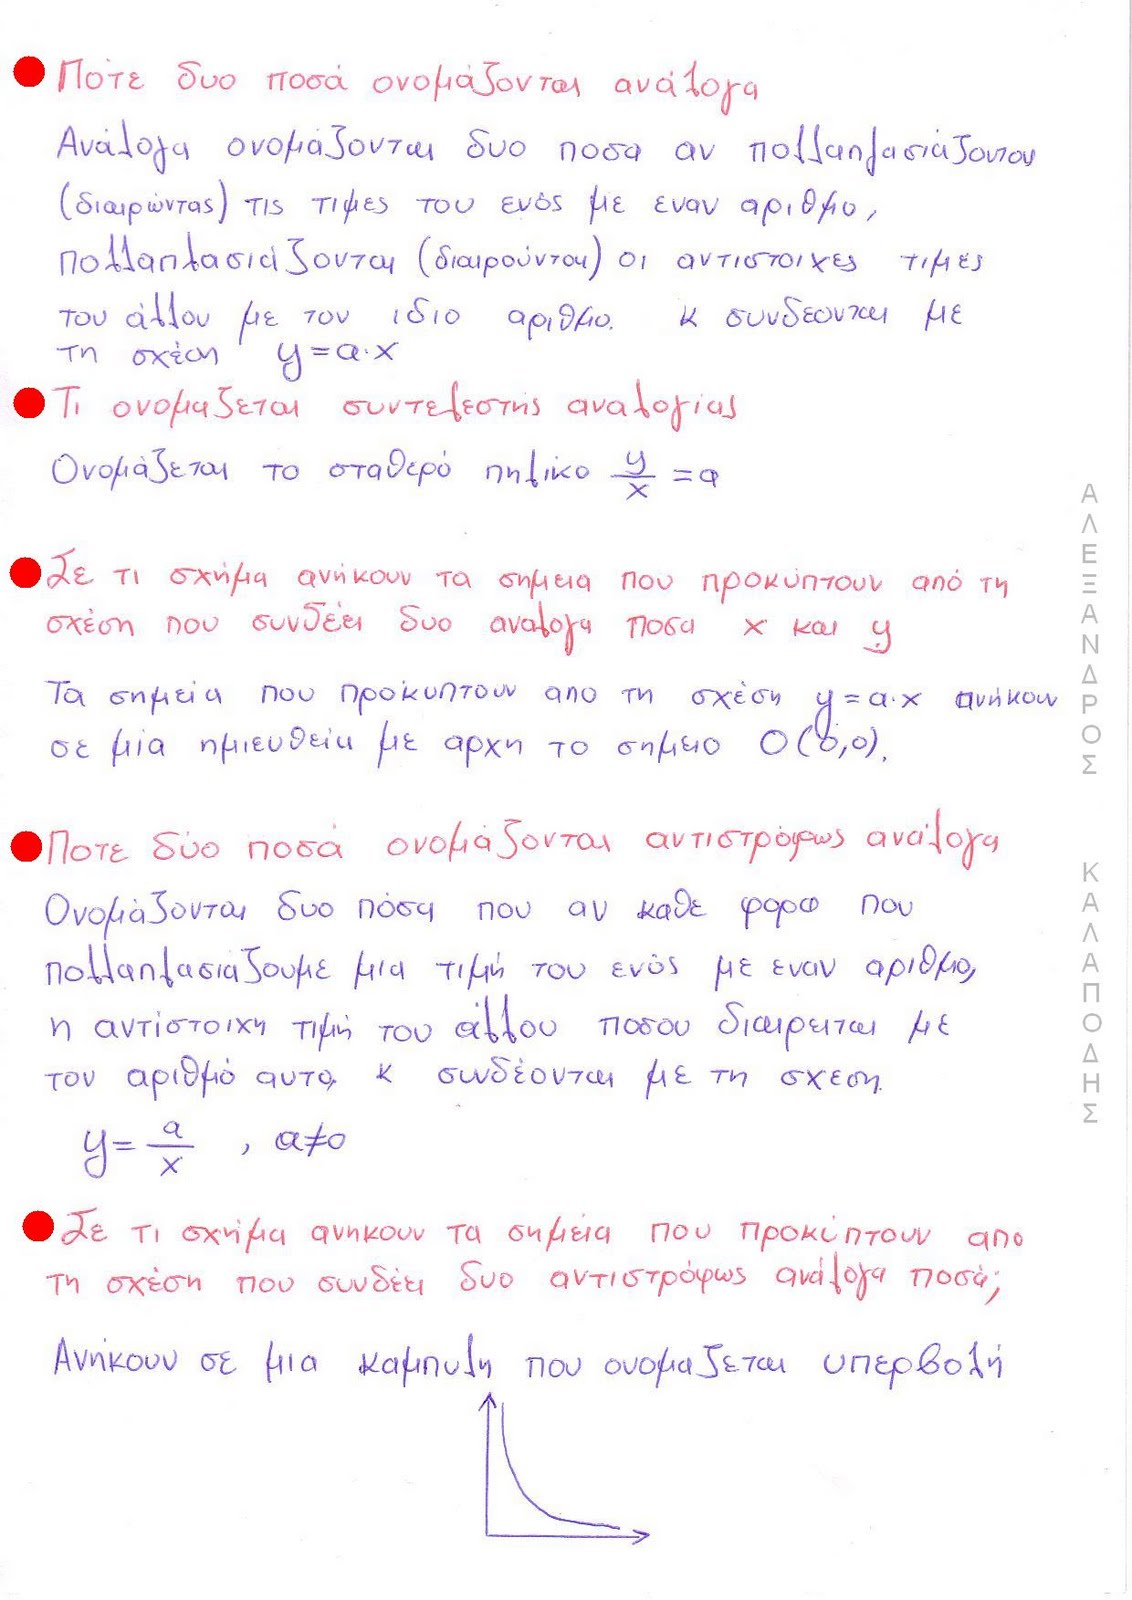 Πότε δυο ποσά ονομάζονται ανάλογα
Ανάλογα ονομάζονται δυο ποσα αν πολλαπλασιάζονται
(διαιρώντας) τις τιμες του ενός με εναν αριθμο,
πολλαπλασιάζονται (διαιρούνται) οι αντιστοιχες τιμές
του άλλου με τον ιδιο αριθμο. κ συνδεονται με
τη σχέση y=α·x
Τι ονομαζεται συντελεστής αναλογίας
Ονομάζεται το σταθερό πηλίκο y/x =α
Σε τι σχήμα ανήκουν τα σημεια που προκύπτουν από τη
σχέση που συνδέει δυο αναλογα ποσα x και y
Τα σημεία που προκυπτουν απο τη σχέση y=α·x ανήκουν
σε μία ημιευθεία με αρχη το σημειο Ο(0,0).
Ποτε δύο ποσά ονομάζονται αντιστρόφως ανάλογα
Ονομάζονται δυο πόσα που αν καθε φορα που
πολλαπλασιάζουμε μια τιμή του ενός με εναν αριθμο,
η αντίστοιχη τιμή του άλλου ποσου διαιρειται με
τον αριθμό αυτο, κ συνδέονται με τη σχεση.
y= α/x , α≠0
Σε τι σχήμα ανηκουν τα σημεία που προκύπτουν απο
τη σχέση που συνδέει δυο αντιστρόφως ανάλογα ποσά;
Ανήκουν σε μια καμπυλη που ονομαζεται υπερβολή
ΑΛΕΞΑΝΔΡΟΣ ΚΑΛΑΠΟΔΗΣ